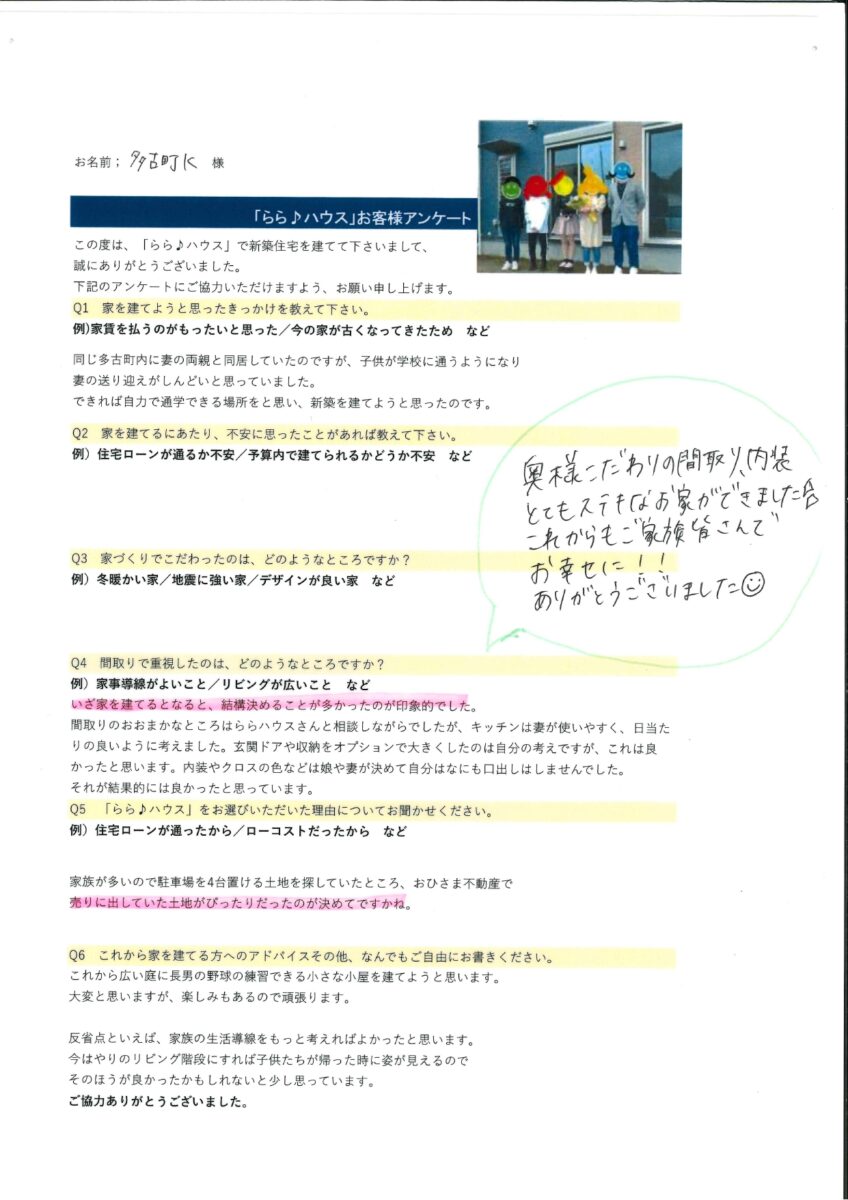 お名前; 多古町K 様
「らら♪ハウス」お客様アンケート
この度は、「らら♪ハウス」で新築住宅を建てて下さいまして、
誠にありがとうございました。
下記のアンケートにご協力いただけますよう、お願い申し上げます。
Q1 家を建てようと思ったきっかけを教えて下さい。
例)家賃を払うのがもったいと思った／今の家が古くなってきたため など
同じ多古町内に妻の両親と同居していたのですが、子供が学校に通うようになり
妻の送り迎えがしんどいと思っていました。
できれば自力で通学できる場所をと思い、新築を建てようと思ったのです。
Q2 家を建てるにあたり、不安に思ったことがあれば教えて下さい。
例）住宅ローンが通るか不安／予算内で建てられるかどうか不安 など
奥様こだわりの間取り、内装
とてもステキなお家ができました☆
これからもご家族皆さんで
お幸せに！！
ありがとうございました☺
Q3 家づくりでこだわったのは、どのようなところですか？
例）冬暖かい家／地震に強い家／デザインが良い家 など
Q4 間取りで重視したのは、どのようなところですか？
例）家事導線がよいこと／リビングが広いこと など
いざ家を建てるとなると、結構決めることが多かったのが印象的でした。
間取りのおおまかなところはららハウスさんと相談しながらでしたが、キッチンは妻が使いやすく、日当た
りの良いように考えました。玄関ドアや収納をオプションで大きくしたのは自分の考えですが、これは良
かったと思います。内装やクロスの色などは娘や妻が決めて自分はなにも口出しはしませんでした。
それが結果的には良かったと思っています。
Q5 「らら♪ハウス」をお選びいただいた理由についてお聞かせください。
例）住宅ローンが通ったから／ローコストだったから など
家族が多いので駐車場を4台置ける土地を探していたところ、おひさま不動産で
売りに出していた土地がぴったりだったのが決めてですかね。
Q6 これから家を建てる方へのアドバイスその他、なんでもご自由にお書きください。
これから広い庭に長男の野球の練習できる小さな小屋を建てようと思います。
大変と思いますが、楽しみもあるので頑張ります。
反省点といえば、家族の生活導線をもっと考えればよかったと思います。
今はやりのリビング階段にすれば子供たちが帰った時に姿が見えるので
そのほうが良かったかもしれないと少し思っています。
ご協力ありがとうございました。